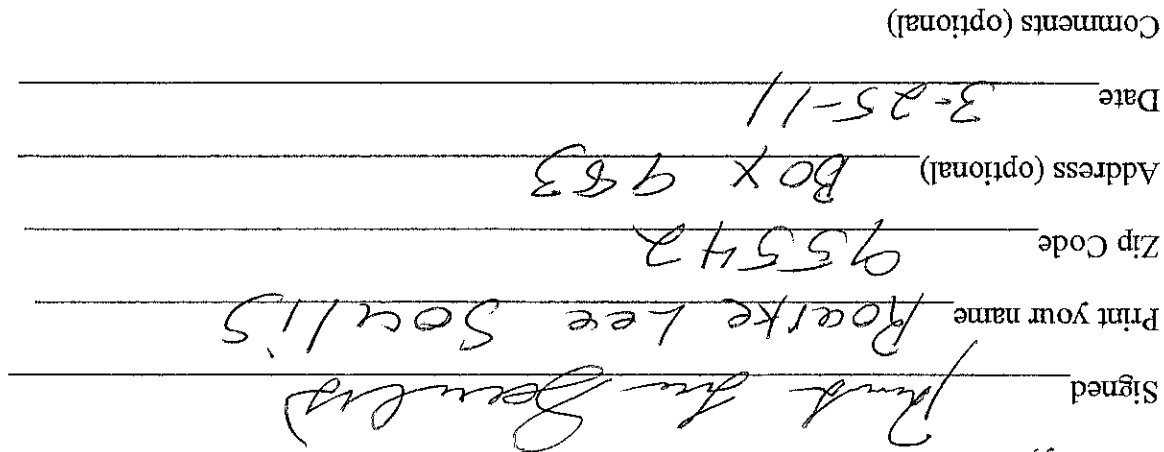 Signed
Print your name Rourke Lee Soulis
Zip Code 95542
Address (optional) BOX 983
Date 3-25-11
Comments (optional)